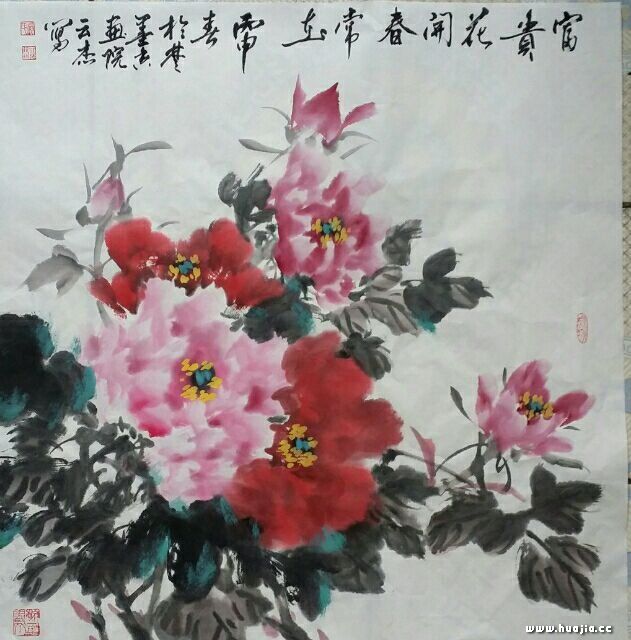 富貴花開春常在
春
於楚
墨
畫院
云杰
寫
www.huajia.cc